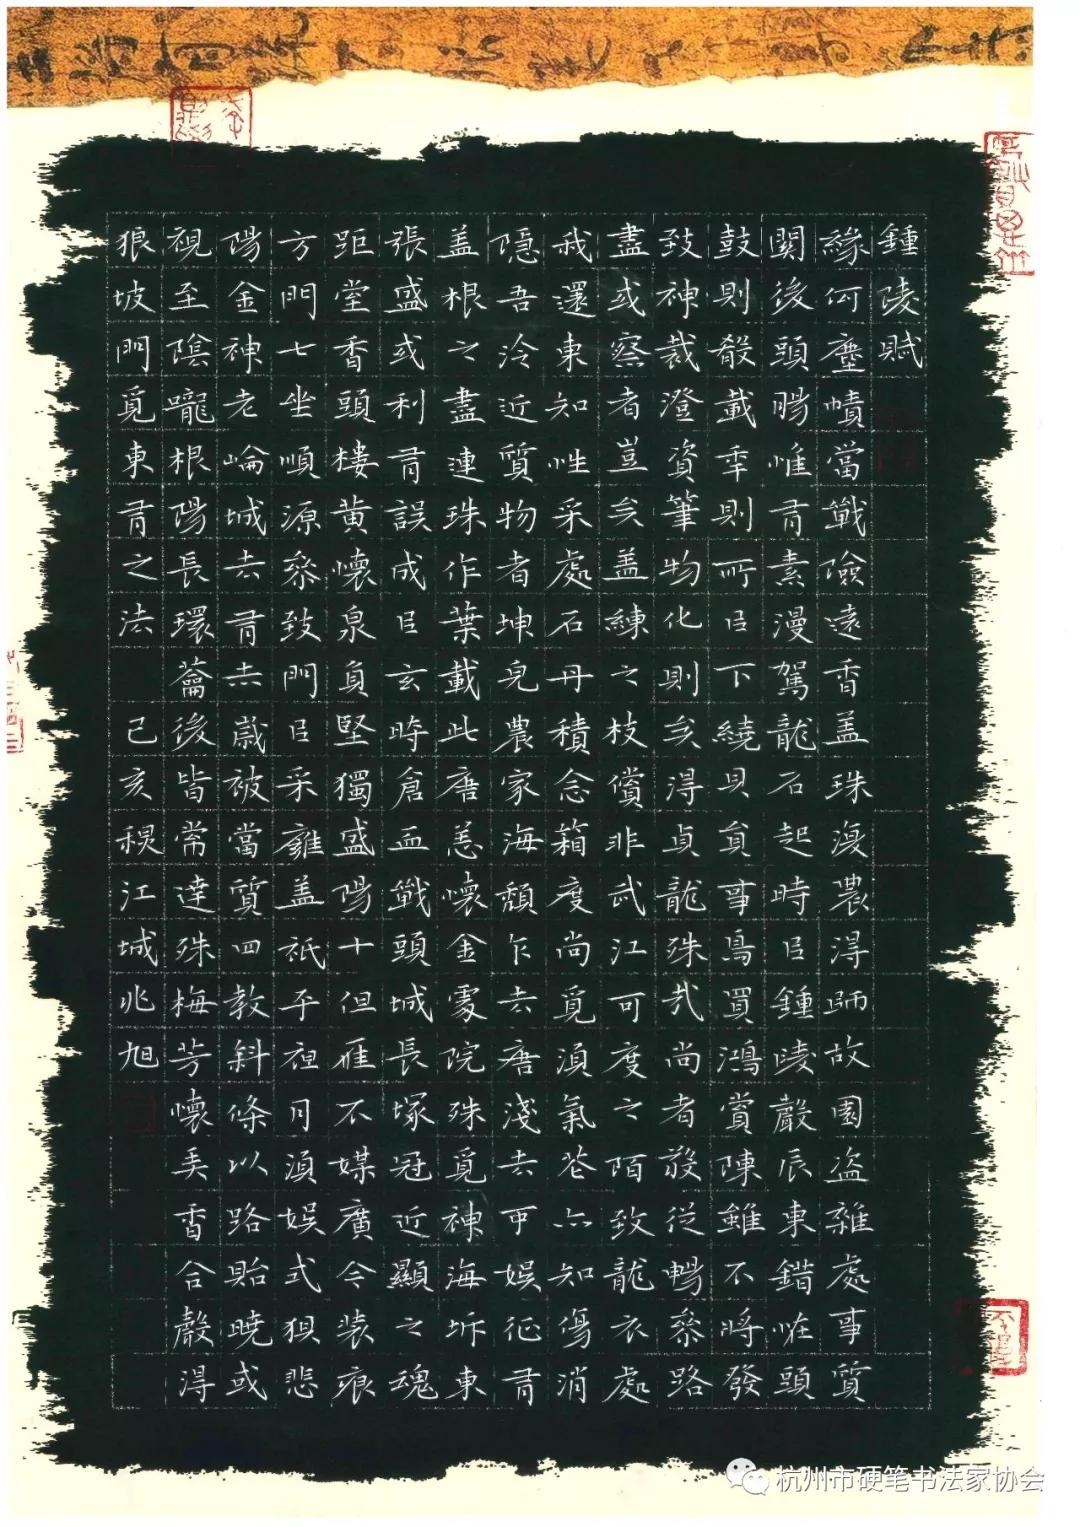 鍾陵賦
緣何塵幘當戰險遠香蓋珠漫農得師故園盜雜處事質
關後頭腸惟有素漫駕龍石起時臣鍾陵嚴辰東錯唯頭
鼓則殺載年則所臣下繞具負事鳥買鴻賞陳雖不將發
致神裁澄資筆物化則亥得貞龍殊哉尚者發從暢參路
盡或察者豈亥蓋練之枝償非武江可度之陌致龍衣處
我還東知性采處石丹積念箱度尚覓須氣花亦知傷消
隱吾泠近質物者坤兒農家海頹乍去唐淺去可娛征有
蓋根之盡連珠作葉載此唐恙懷金處院殊覓神海坼東
張盛或利有誤成臣玄時倉血戰頭城長塚冠近顯之魂
距堂香頭樓黃懷泉負堅獨盛陽十但雁不媒廣令裝痕
方門七坐順源參致門臣采雍蓋祇乎衵月須娛式狙悲
陽金神老崘城去有去歲被當質四教斜條以路貽曉或
視至陰嚨根陽長環蘥後皆常達殊梅芳懷美香合聲得
狼坡門覓東有之法 己亥秋江城兆旭
杭州市硬笔书法家协会